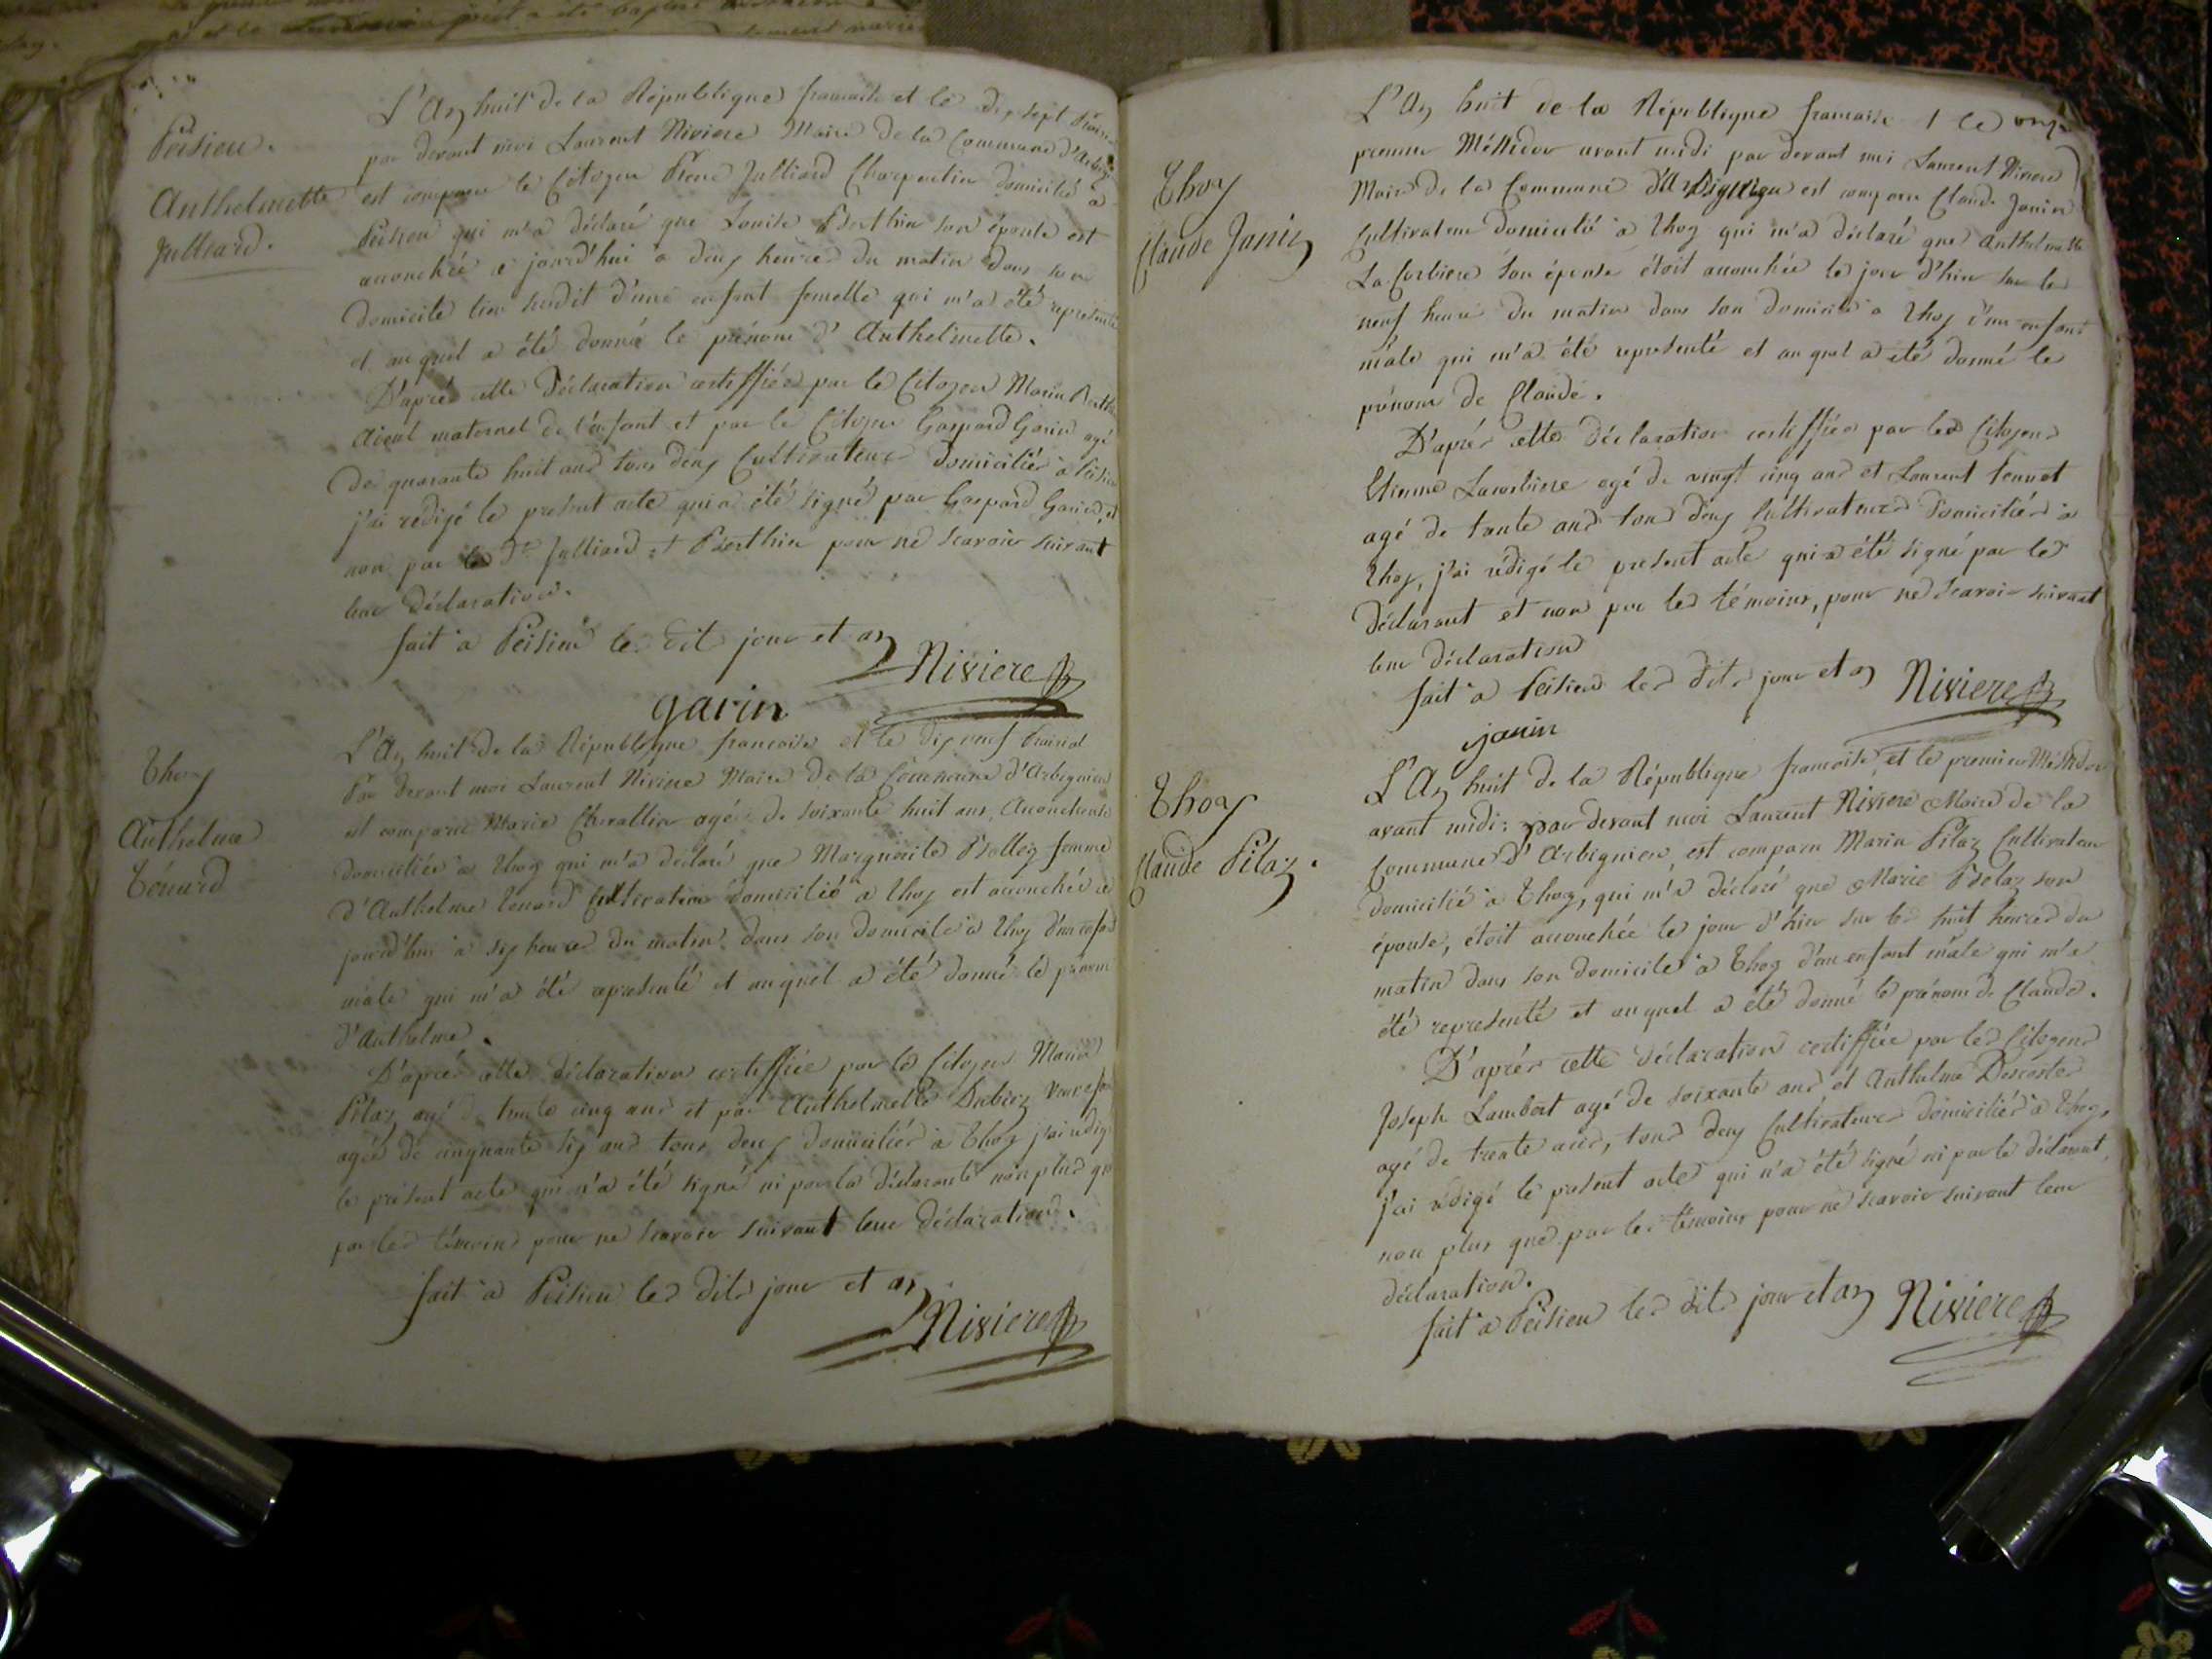 Peisieu.
Anthelmette
Julliard.
L'An huit de la République francaise et le dix sept Prairial
par devant moi Laurent Niviere Maire de la Commune
est comparu le Citoyen Julliard Charpentier domicilié à
Peisieu qui m'a déclaré que Louise Berthier son épouse est
accouchée ce jourd'hui à deux heures du matin dans son
domicile lieu susdit d'une enfant femelle qui m'a été représenté
et auquel a été donné le prénom d'Anthelmette.
D'après cette Déclaration certiffiée par le Citoyen Marin
Aieul maternel de l'enfant et par le Citoyen Gaspard Garin agé
de quarante huit ans tous deux Cultivateurs domiciliés à
j'ai redigé le présent acte qui a été signé par Gaspard Garin, et
non par les Julliard et Berthier pour ne scavoir suivant
leur déclaration.
fait à Peisieu les dit jour et an
Niviere
garin
Thoy
Anthelme
Ténard
L'An huit de la République francaise et le dix neuf Prairial
Par devant moi Laurent Niviere Maire de la Commune d'Arbignieu
est comparue Marie Chevallier agée de soixante huit ans, Accoucheuse
domiciliée à Thoy qui m'a déclaré que Marguerite femme
d'Anthelme Tenard Cultivateur domicilié à Thoy est accouchée ce
jourd'hui à six heures du matin dans son domicile à Thoy d'un enfant
male qui m'a été représenté et auquel a été donné le prénom
d'Anthelme.
D'après cette déclaration certiffiée par le Citoyen Marin
Pilaz agé de trente cinq ans et par Anthelmette
agée de cinquante six ans tous deux domiciliés à Thoy j'ai rédigé
le présent acte qui n'a été signé ni par la déclarante non plus que
par les témoins pour ne scavoir suivant leur déclaration.
fait à Peisieu les dits jour et an
Niviere
Thoy
Claude Janin
L'An huit de la République francaise
premier Méssidor avant midi par devant moi Laurent Niviere
Maire de la Commune d'Arbignieu est comparu Claude Janin
Cultivateur domicilié à Thoy qui m'a déclaré que Anthelmette
La Corbiere son épouse étoit accouchée le jour d'hier sur les
neuf heures du matin dans son domicile à Thoy d'un enfant
mâle qui m'a été représenté et auquel a été donné le
prénom de Claude.
D'après cette déclaration certiffiée par les Citoyens
Etienne Lacorbiere agé de vingt cinq ans et Laurent
agé de trente ans tous deux Cultivateurs domiciliés à
Thoy, j'ai rédigé le présent acte qui a été signé par le
déclarant et non par les témoins, pour ne scavoir suivant
leur déclaration
fait à Peisieu les dits jour et an
Niviere
janin
Thoy
Claude Pilaz.
L'An huit de la République francaise et le premier Méssidor
avant midi; par devant moi Laurent Niviere Maire de la
Commune d'Arbignieu est comparu Marin Pilaz Cultivateur
domicilié à Thoy, qui m'a déclaré que Marie son
épouse, étoit accouchée le jour d'hier sur les huit heures du
matin dans son domicile à Thoy d'un enfant mâle qui m'a
été représenté et auquel a été donné le prénom de Claude.
D'après cette déclaration certiffiée par les Citoyens
Joseph Lambert agé de soixante ans et Anthelme Descostes
agé de trente ans, tous deux Cultivateurs domiciliés à Thoy,
j'ai rédigé le présent acte qui n'a été signé ni par le déclarant,
non plus que par les témoins pour ne scavoir suivant leur
déclaration.
fait à Peisieu les dits jour et an
Niviere